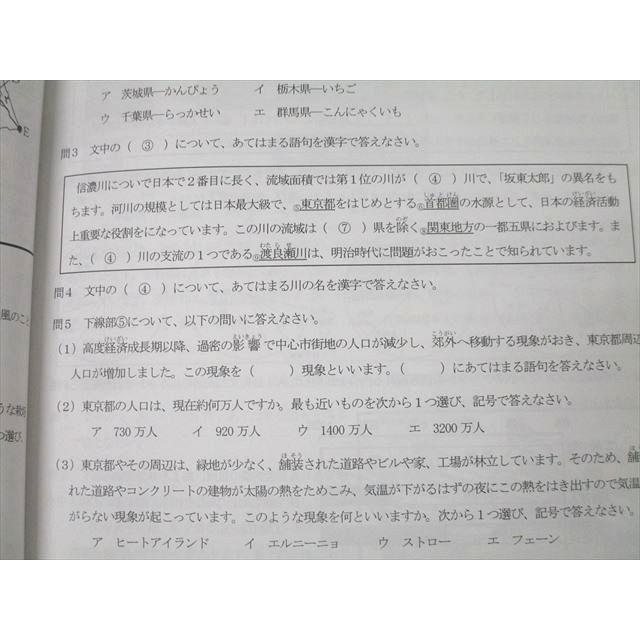 ア 茨城県―かんぴょう イ 栃木県―いちご
ウ 千葉県―らっかせい エ 群馬県―こんにゃくいも
問3 文中の( ③ )について、あてはまる語句を漢字で答えなさい。
信濃川についで日本で2番目に長く、流域面積では第1位の川が( ④ )川で、「坂東太郎」の異名をも
ちます。河川の規模としては日本最大級で、⑤東京都をはじめとする⑥首都圏の水源として、日本の経済活動
上重要な役割をになっています。この川の流域は( ⑦ )県を除く⑧関東地方の一都五県におよびます。ま
た、( ④ )川の支流の1つである⑨渡良瀬川は、明治時代に問題がおこったことで知られています。
問4 文中の( ④ )について、あてはまる川の名を漢字で答えなさい。
問5 下線部⑤について、以下の問いに答えなさい。
(1) 高度経済成長期以降、過密の影響で中心市街地の人口が減少し、郊外へ移動する現象がおき、東京都周辺
人口が増加しました。この現象を( )現象といいます。( )にあてはまる語句を答えなさい。
(2) 東京都の人口は、現在約何万人ですか。最も近いものを次から1つ選び、記号で答えなさい。
ア 730万人 イ 920万人 ウ 1400万人 エ 3200万人
(3) 東京都やその周辺は、緑地が少なく、舗装された道路やビルや家、工場が林立しています。そのため、舗
れた道路やコンクリートの建物が太陽の熱をためこみ、気温が下がるはずの夜にこの熱をはき出すので気温
がらない現象が起こっています。このような現象を何といいますか。次から1つ選び、記号で答えなさい。
ア ヒートアイランド イ エルニーニョ ウ ストロー エ フェーン
E
風のこ
選び、